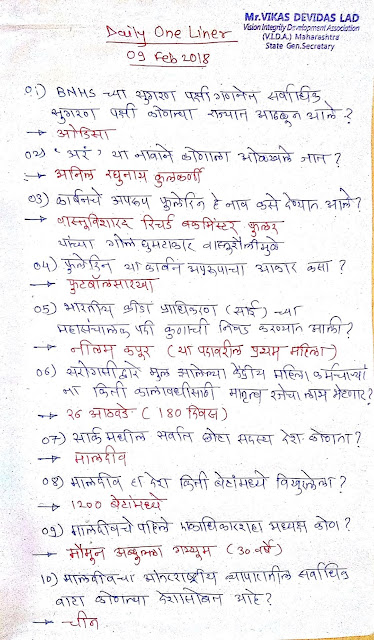 Mr.VIKAS DEVIDAS LAD
Vision Integrity Development Association
(V.I.D.A.) Maharashtra
State Gen.Secretary
Daily One Liner
09 Feb 2018
01) BNHS च्या सुगरण पक्षी गणनेत सर्वाधिक
सुगरण पक्षी कोणत्या राज्यात आढळून आले ?
→ ओडिसा
02) 'अरं' या नावाने कोणाला ओळखले जात ?
→ अनिल रघुनाथ कुलकर्णी
03) कार्बनचे अपरूप फुलेरिन हे नाव कसे देण्यात आले?
→ वास्तूविशारद रिचर्ड बकमिंस्टर फुलर
यांच्या गोल घुमटाकार वास्तूशैलीमुळे
04) फुलेरिन या कार्बन अपरूपाचा आकार कसा ?
→ फुटबॉलसारखा
05) भारतीय क्रीडा प्राधिकरण (साई) च्या
महासंचालक पदी कुणाची निवड करण्यात आली?
→ नीलम कपूर (या पदावरील प्रथम महिला)
06) सरोगसीद्वारे मुल झालेल्या केंद्रीय महिला कर्मचाऱ्यां
ना किती कालावधीसाठी मातृत्व रजेचा लाभ भेटणार?
→ २६ आठवडे (180 दिवस)
07) सार्क मधील सर्वात छोटा सदस्य देश कोणता?
→ मालदीव
08) मालदीव हा देश किती बेटांमध्ये विखुरलेला?
→ 1200 बेटांमध्ये
09) मालदीवचे पहिले एकाधिकारशहा अध्यक्ष कोण?
→ मौमुन अब्दुल्ला गय्यूम (30 वर्षे)
10) मालदीवचा आंतरराष्ट्रीय व्यापारातील सर्वाधिक
वाटा कोणत्या देशासोबत आहे?
→ चीन